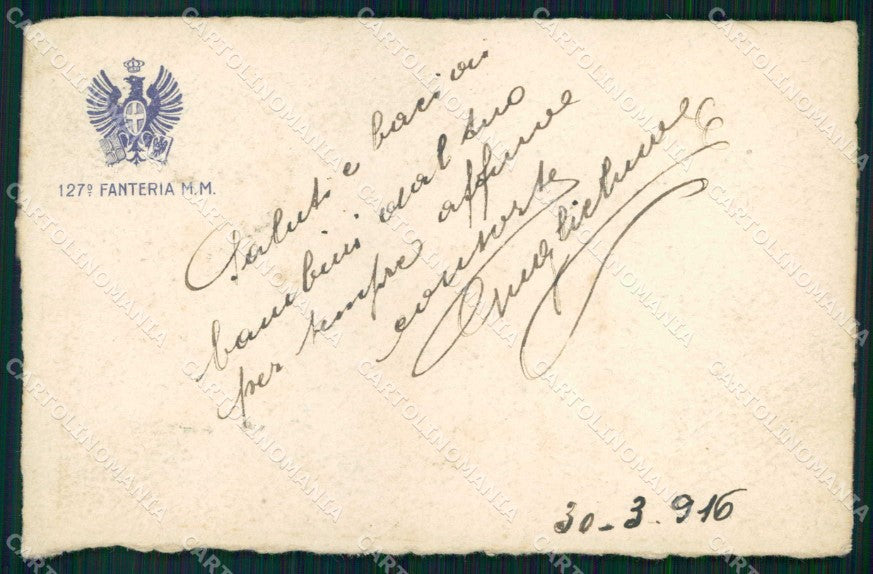 127º FANTERIA M.M.
Saluti e baci ai
bambini dal tuo
per sempre affmoe
consorte
Guglielmo
30-3-916
CARTOLINOMANIA